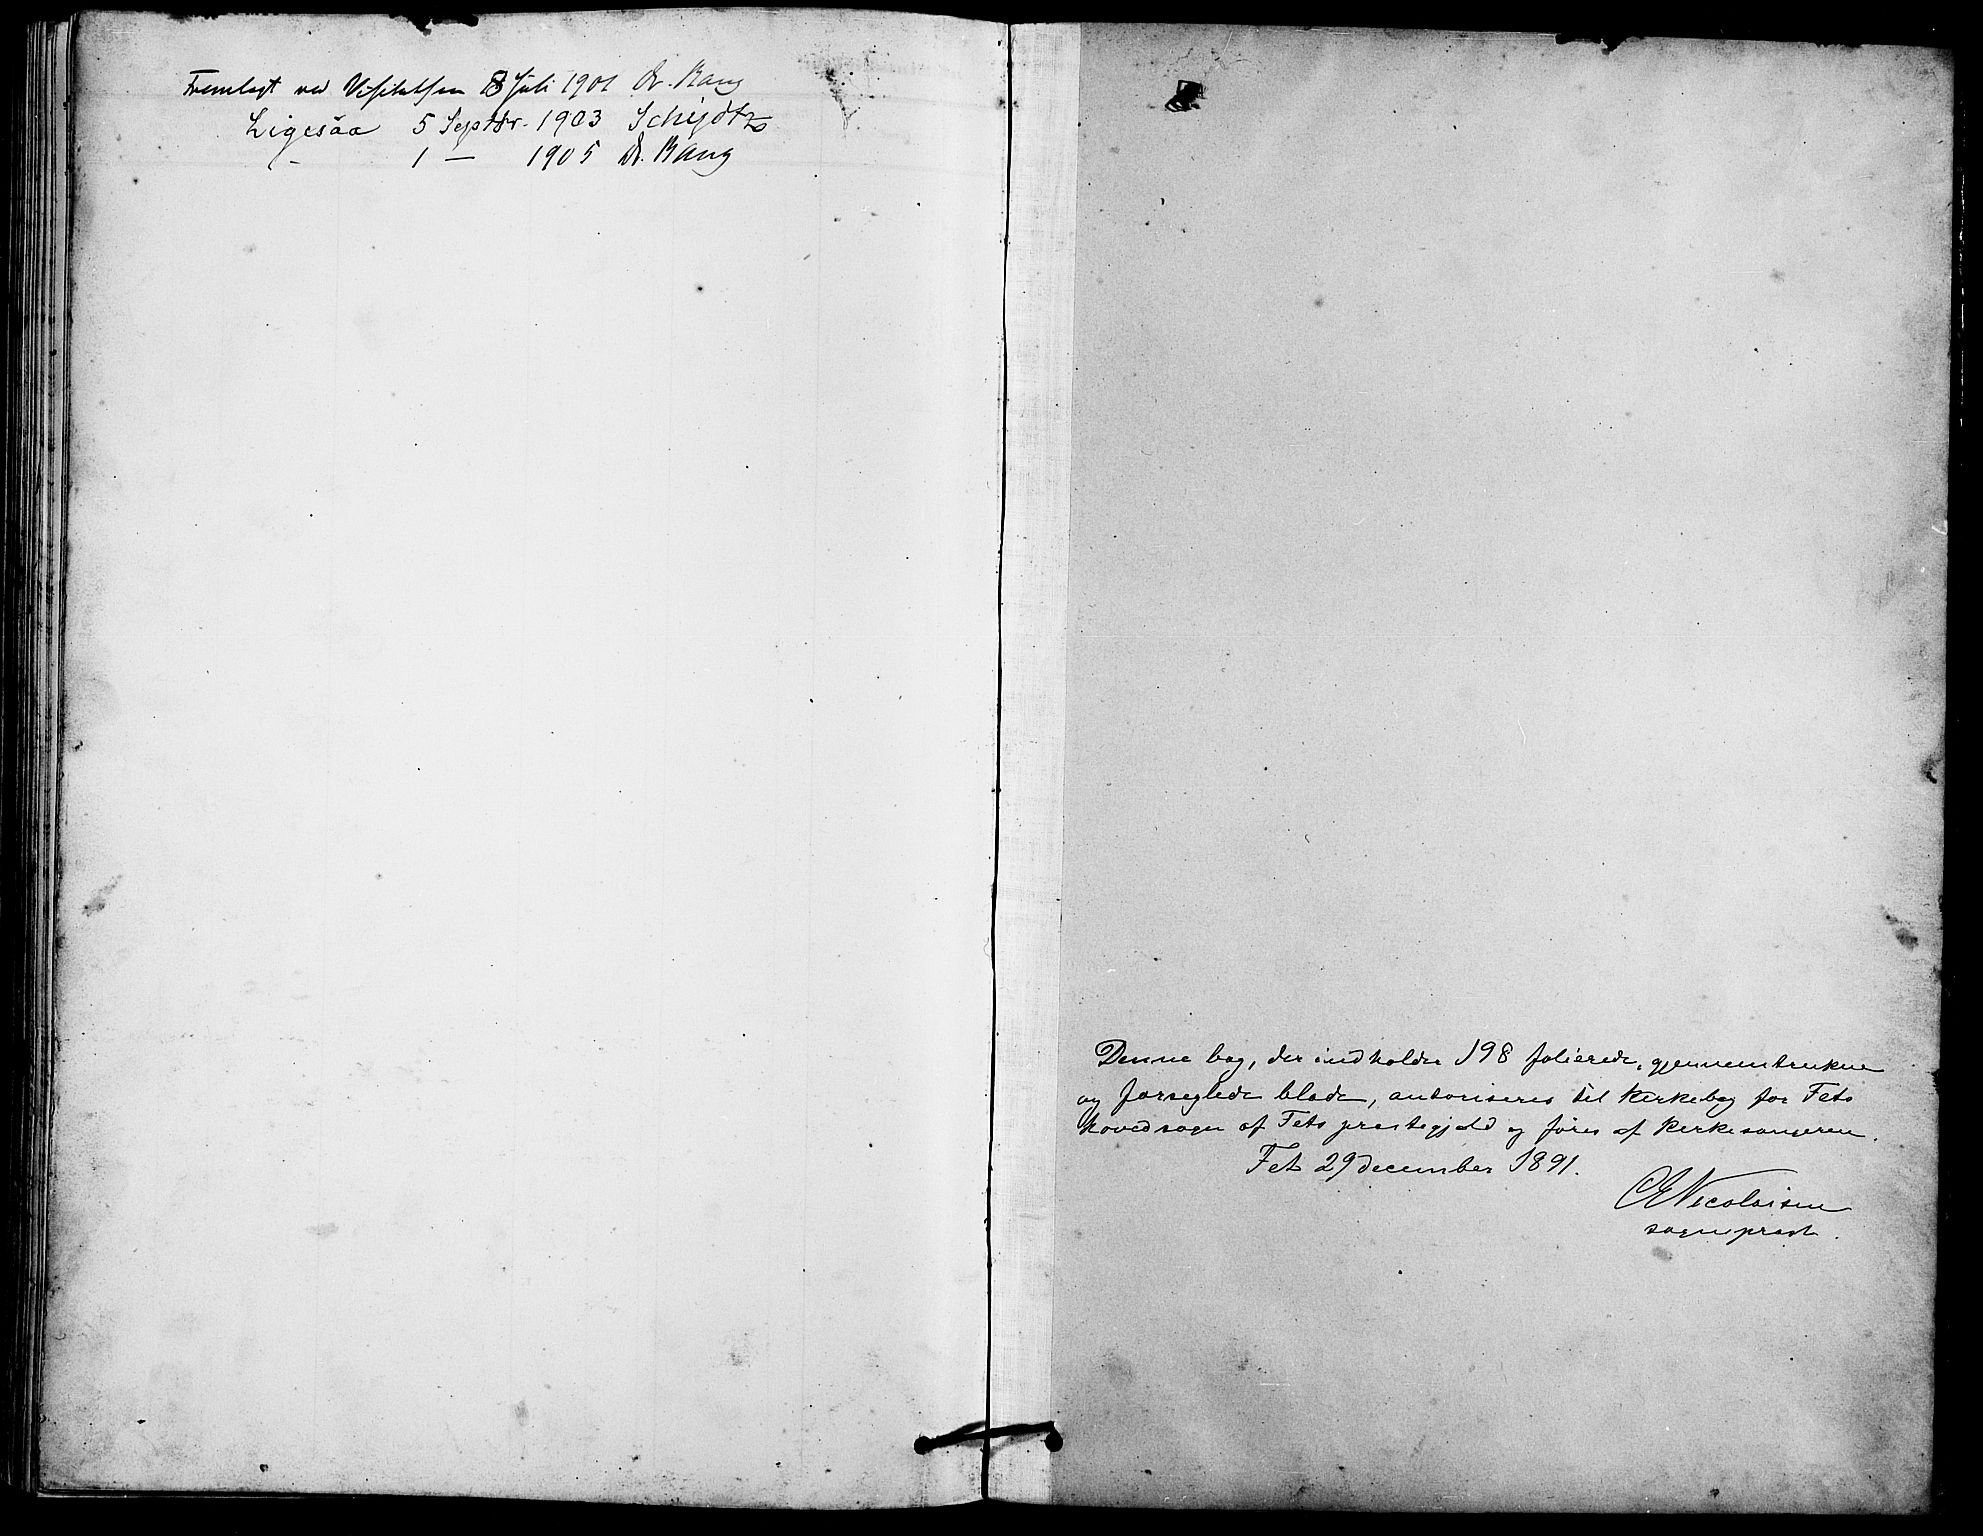 Fremlagt ved Visitatsen 8 Juli 1901 Dr. Bang
Ligesaa 5 Septbr. 1903 Schjødtz
- 1 - 1905 Dr. Bang
Denne bog, der indholder 198 folierede, gjennemtrukne
og forseglede blade, autoriseres til Kirkebog for Fets
hovedsogn af Fets prestegjeld og føres af Kirkesangeren.
Fet 29 december 1891.
CENicolaisen
sogneprest.